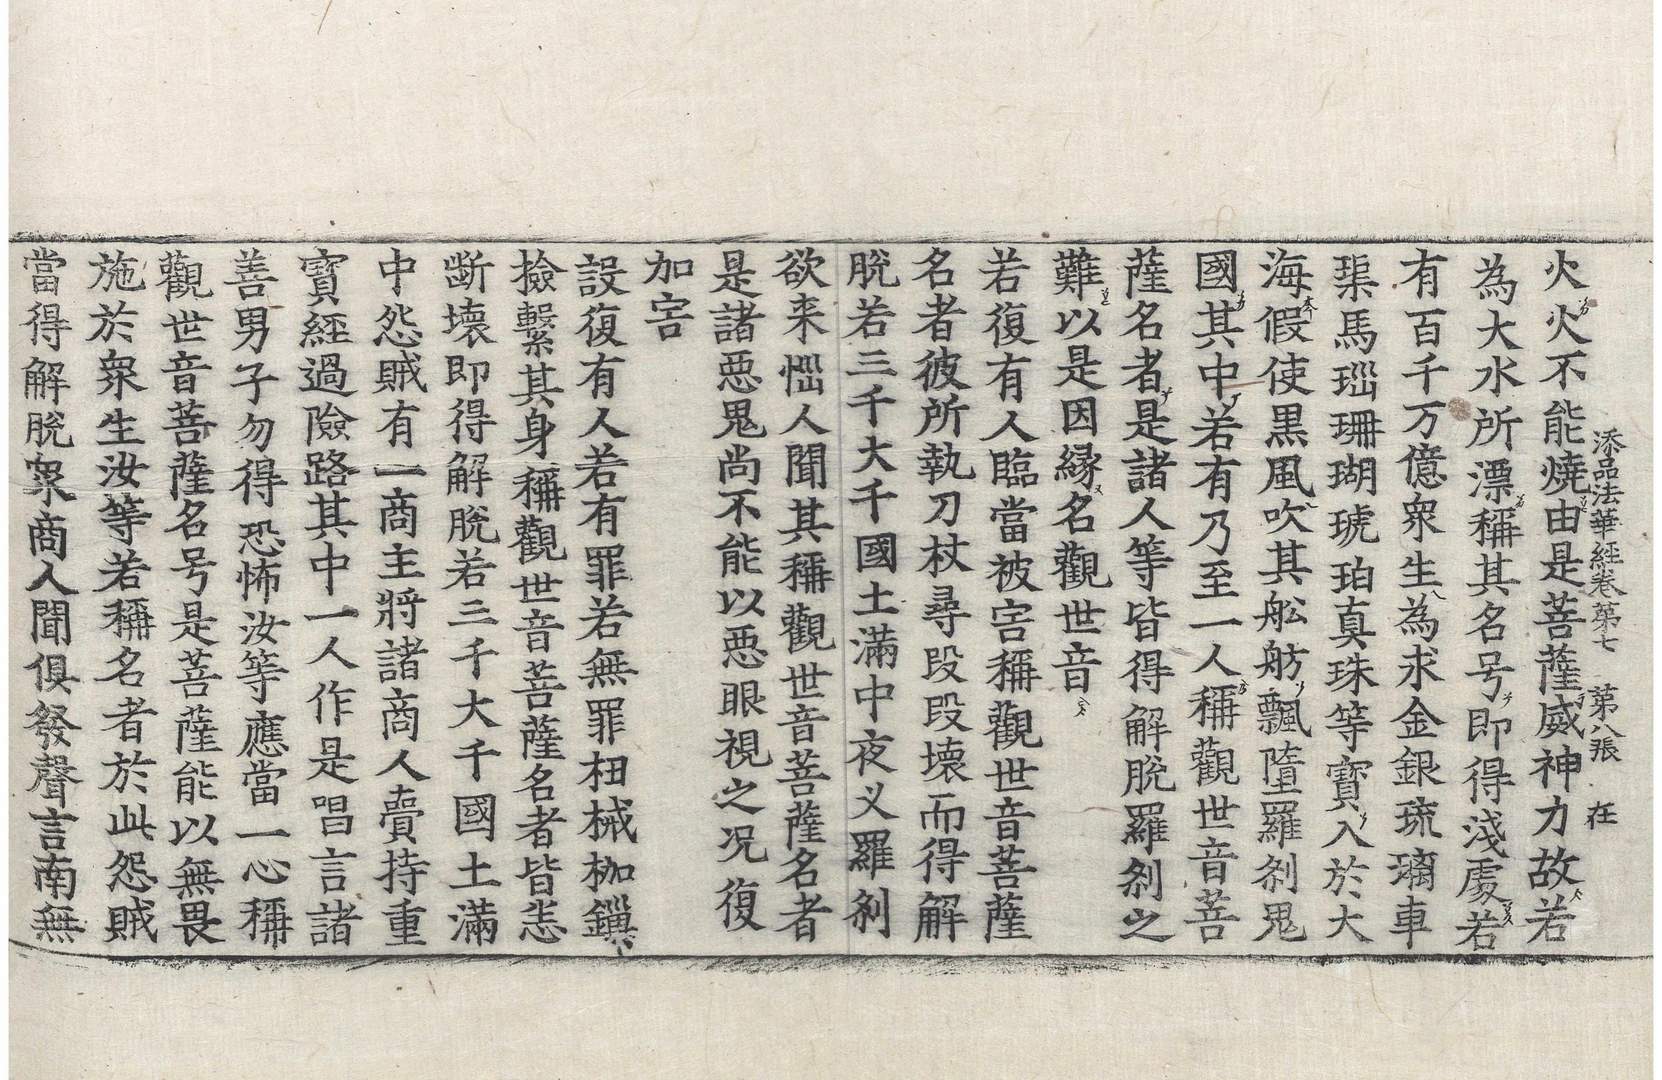 添品法華經卷苐七 第八張 在
火火不能燒由是菩薩威神力故若
為大水所漂稱其名号即得淺處若
有百千万億衆生為求金銀琉璃車
𤦲馬瑙珊瑚琥珀真珠等寶入於大
海假使黒風吹其舩舫飄墮羅刹鬼
國其中若有乃至一人稱觀世音菩
薩名者是諸人等皆得解脫羅刹之
難以是因縁名觀世音
若復有人臨當被害稱觀世音菩薩
名者彼所執刀杖尋段段壞而得解
脫若三千大千國土滿中夜叉羅刹
欲来惱人聞其稱觀世音菩薩名者
是諸惡鬼尚不能以惡眼視之况復
加害
設復有人若有罪若無罪杻械枷鏁
撿繫其身稱觀世音菩薩名者皆悉
斷壞即得解脫若三千大千國土滿
中怨賊有一商主將諸商人賷持重
寳經過險路其中一人作是唱言諸
善男子勿得恐怖汝等應當一心稱
觀世音菩薩名号是菩薩能以無畏
施於衆生汝等若稱名者於此怨賊
當得解脫衆商人聞俱發聲言南無